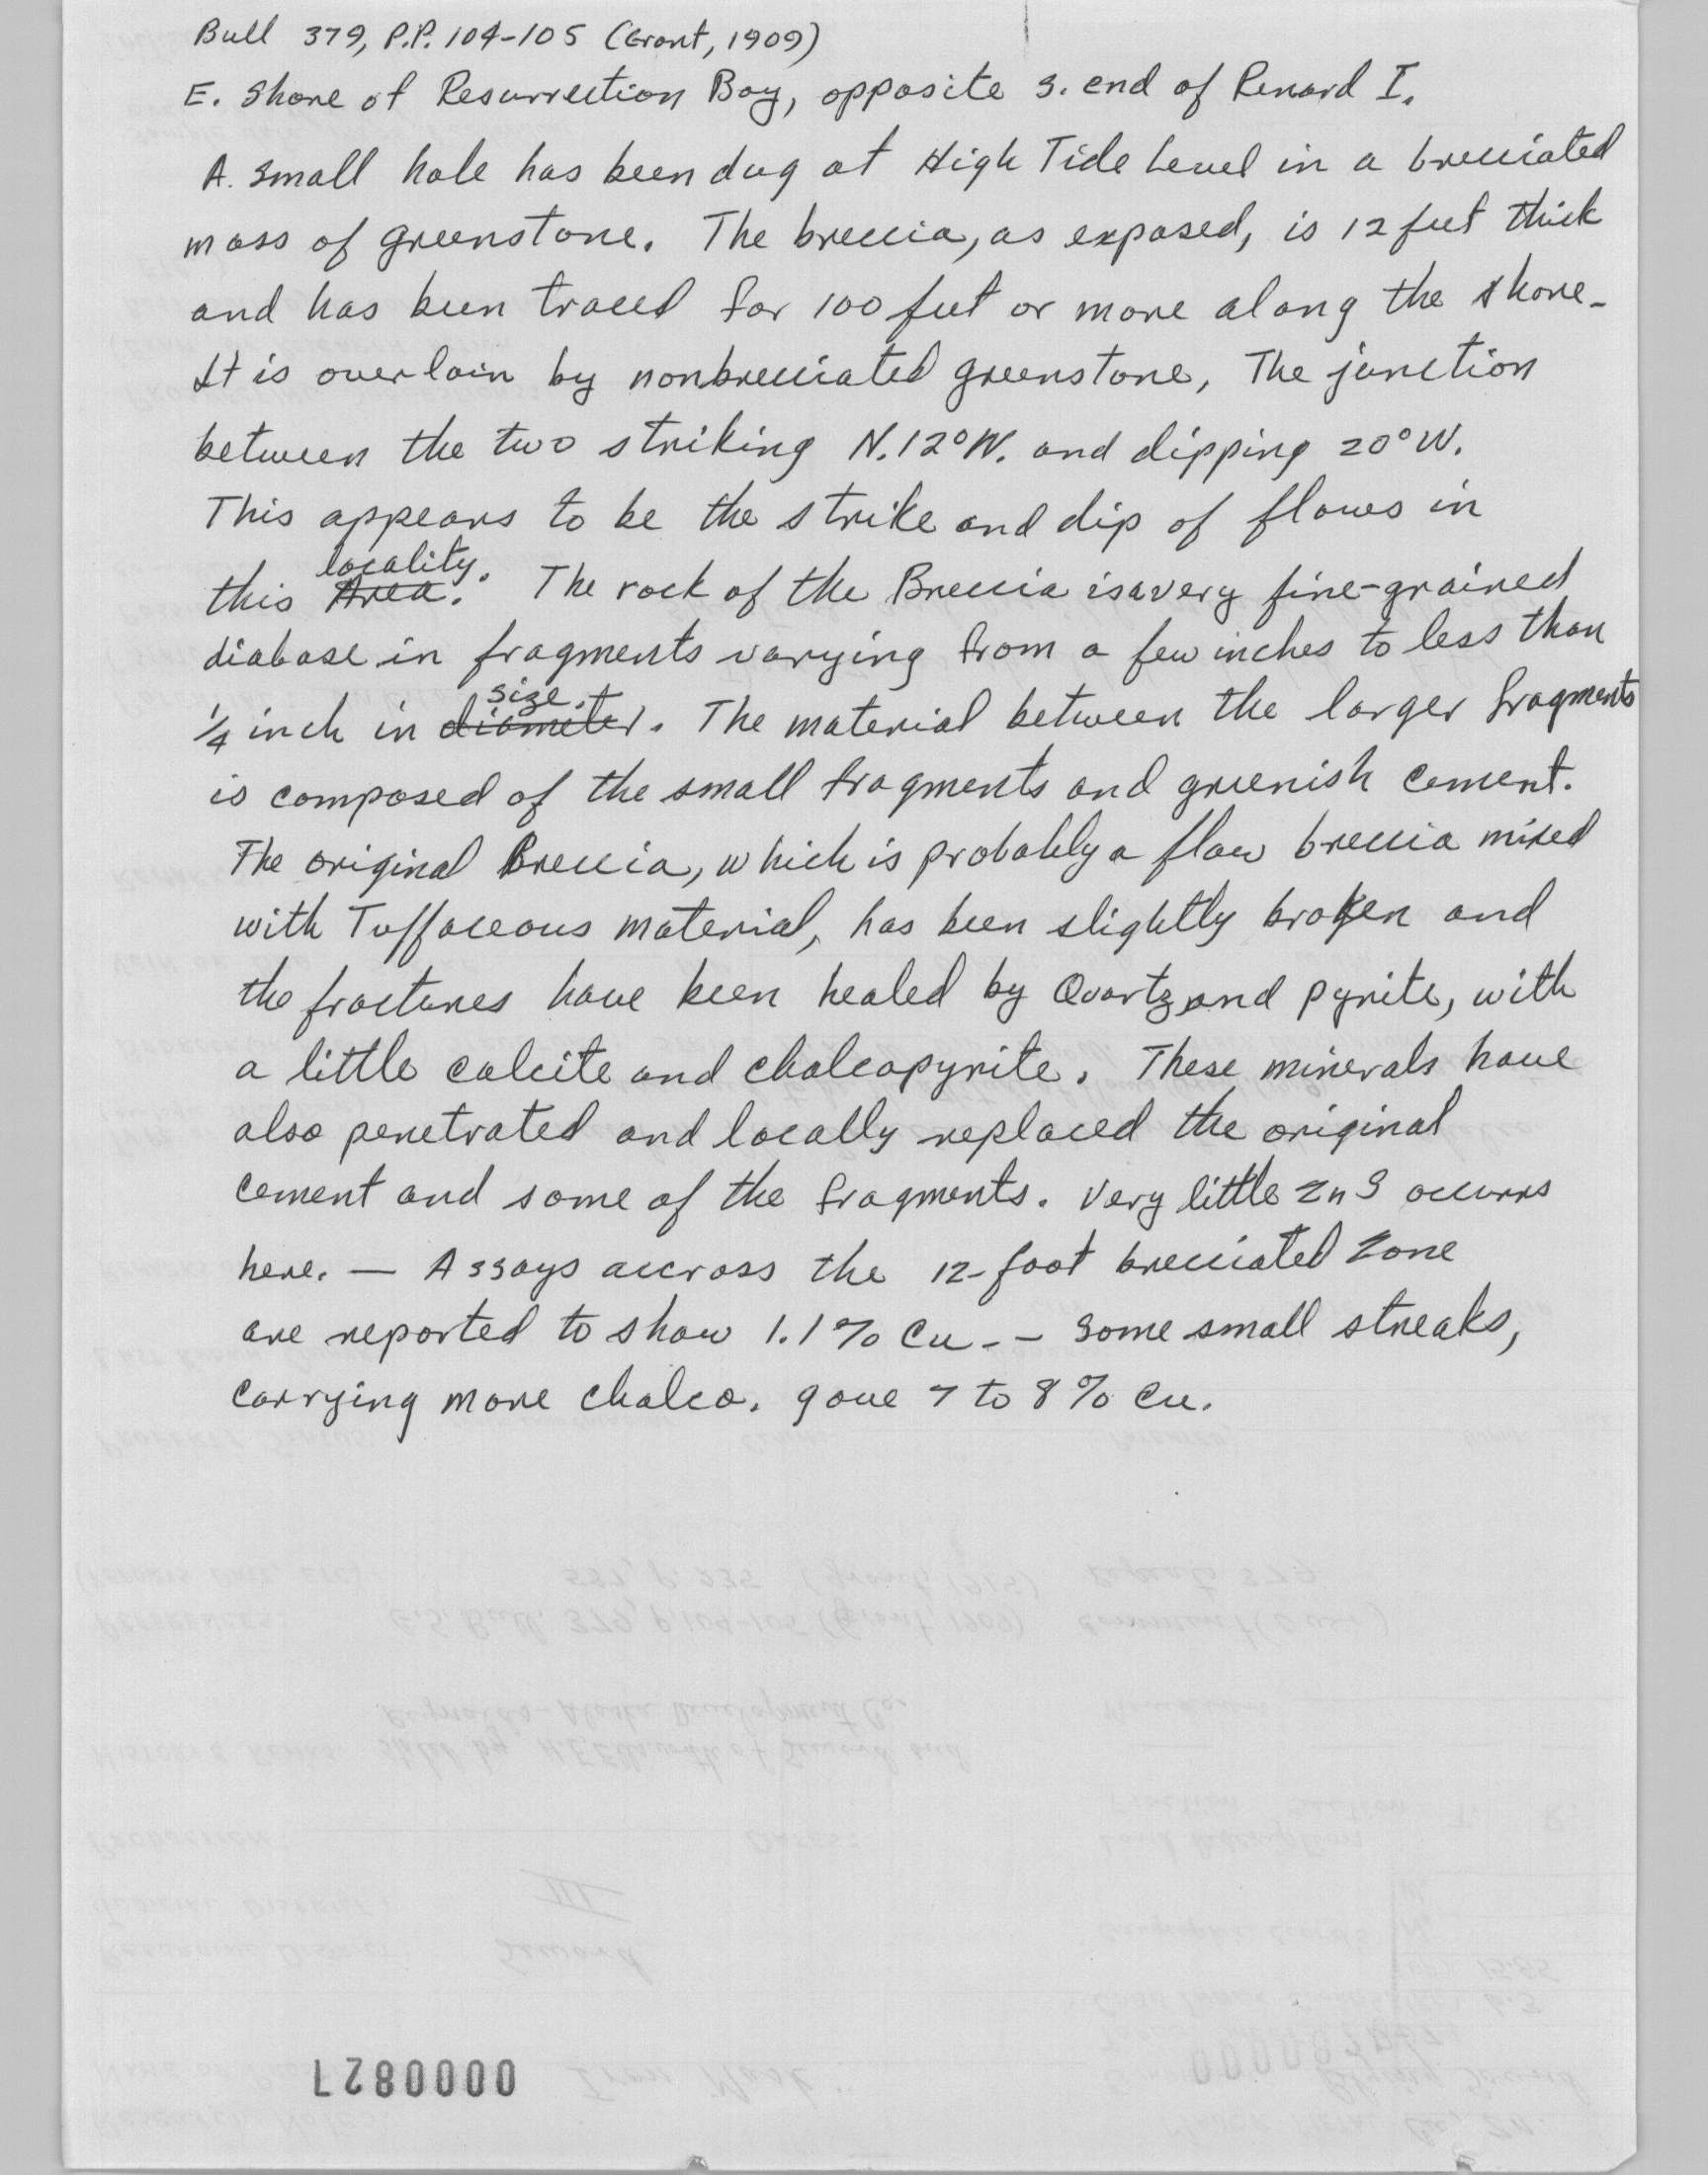 Bull 379, P.P. 104-105 (Grant, 1909)
E. Shore of Resurrection Bay, opposite S. end of Renard I.
A. small hole has been dug at High Tide Level in a brecciated
mass of greenstone. The breccia, as exposed, is 12 feet thick
and has been traced for 100 feet or more along the shore-
It is overlain by nonbrecciated greenstone, The junction
between the two striking N.12°W. and dipping 20°W.
This appears to be the strike and dip of flows in
this Area. locality. The rock of the Breccia is a very fine-grained
diabase in fragments varying from a few inches to less than
1/4 inch in diameter. size. The material between the larger fragments
is composed of the small fragments and greenish cement.
The original Breccia, which is probably a flow breccia mixed
with Tuffaceous material, has been slightly broken and
the fractures have been healed by Quartz and pyrite, with
a little calcite and chalcopyrite. These minerals have
also penetrated and locally replaced the original
cement and some of the fragments. Very little ZnS occurrs
here. — Assays accross the 12-foot brecciated zone
are reported to show 1.1% Cu. - - Some small streaks,
carrying more chalco. gave 7 to 8% Cu.
0000827